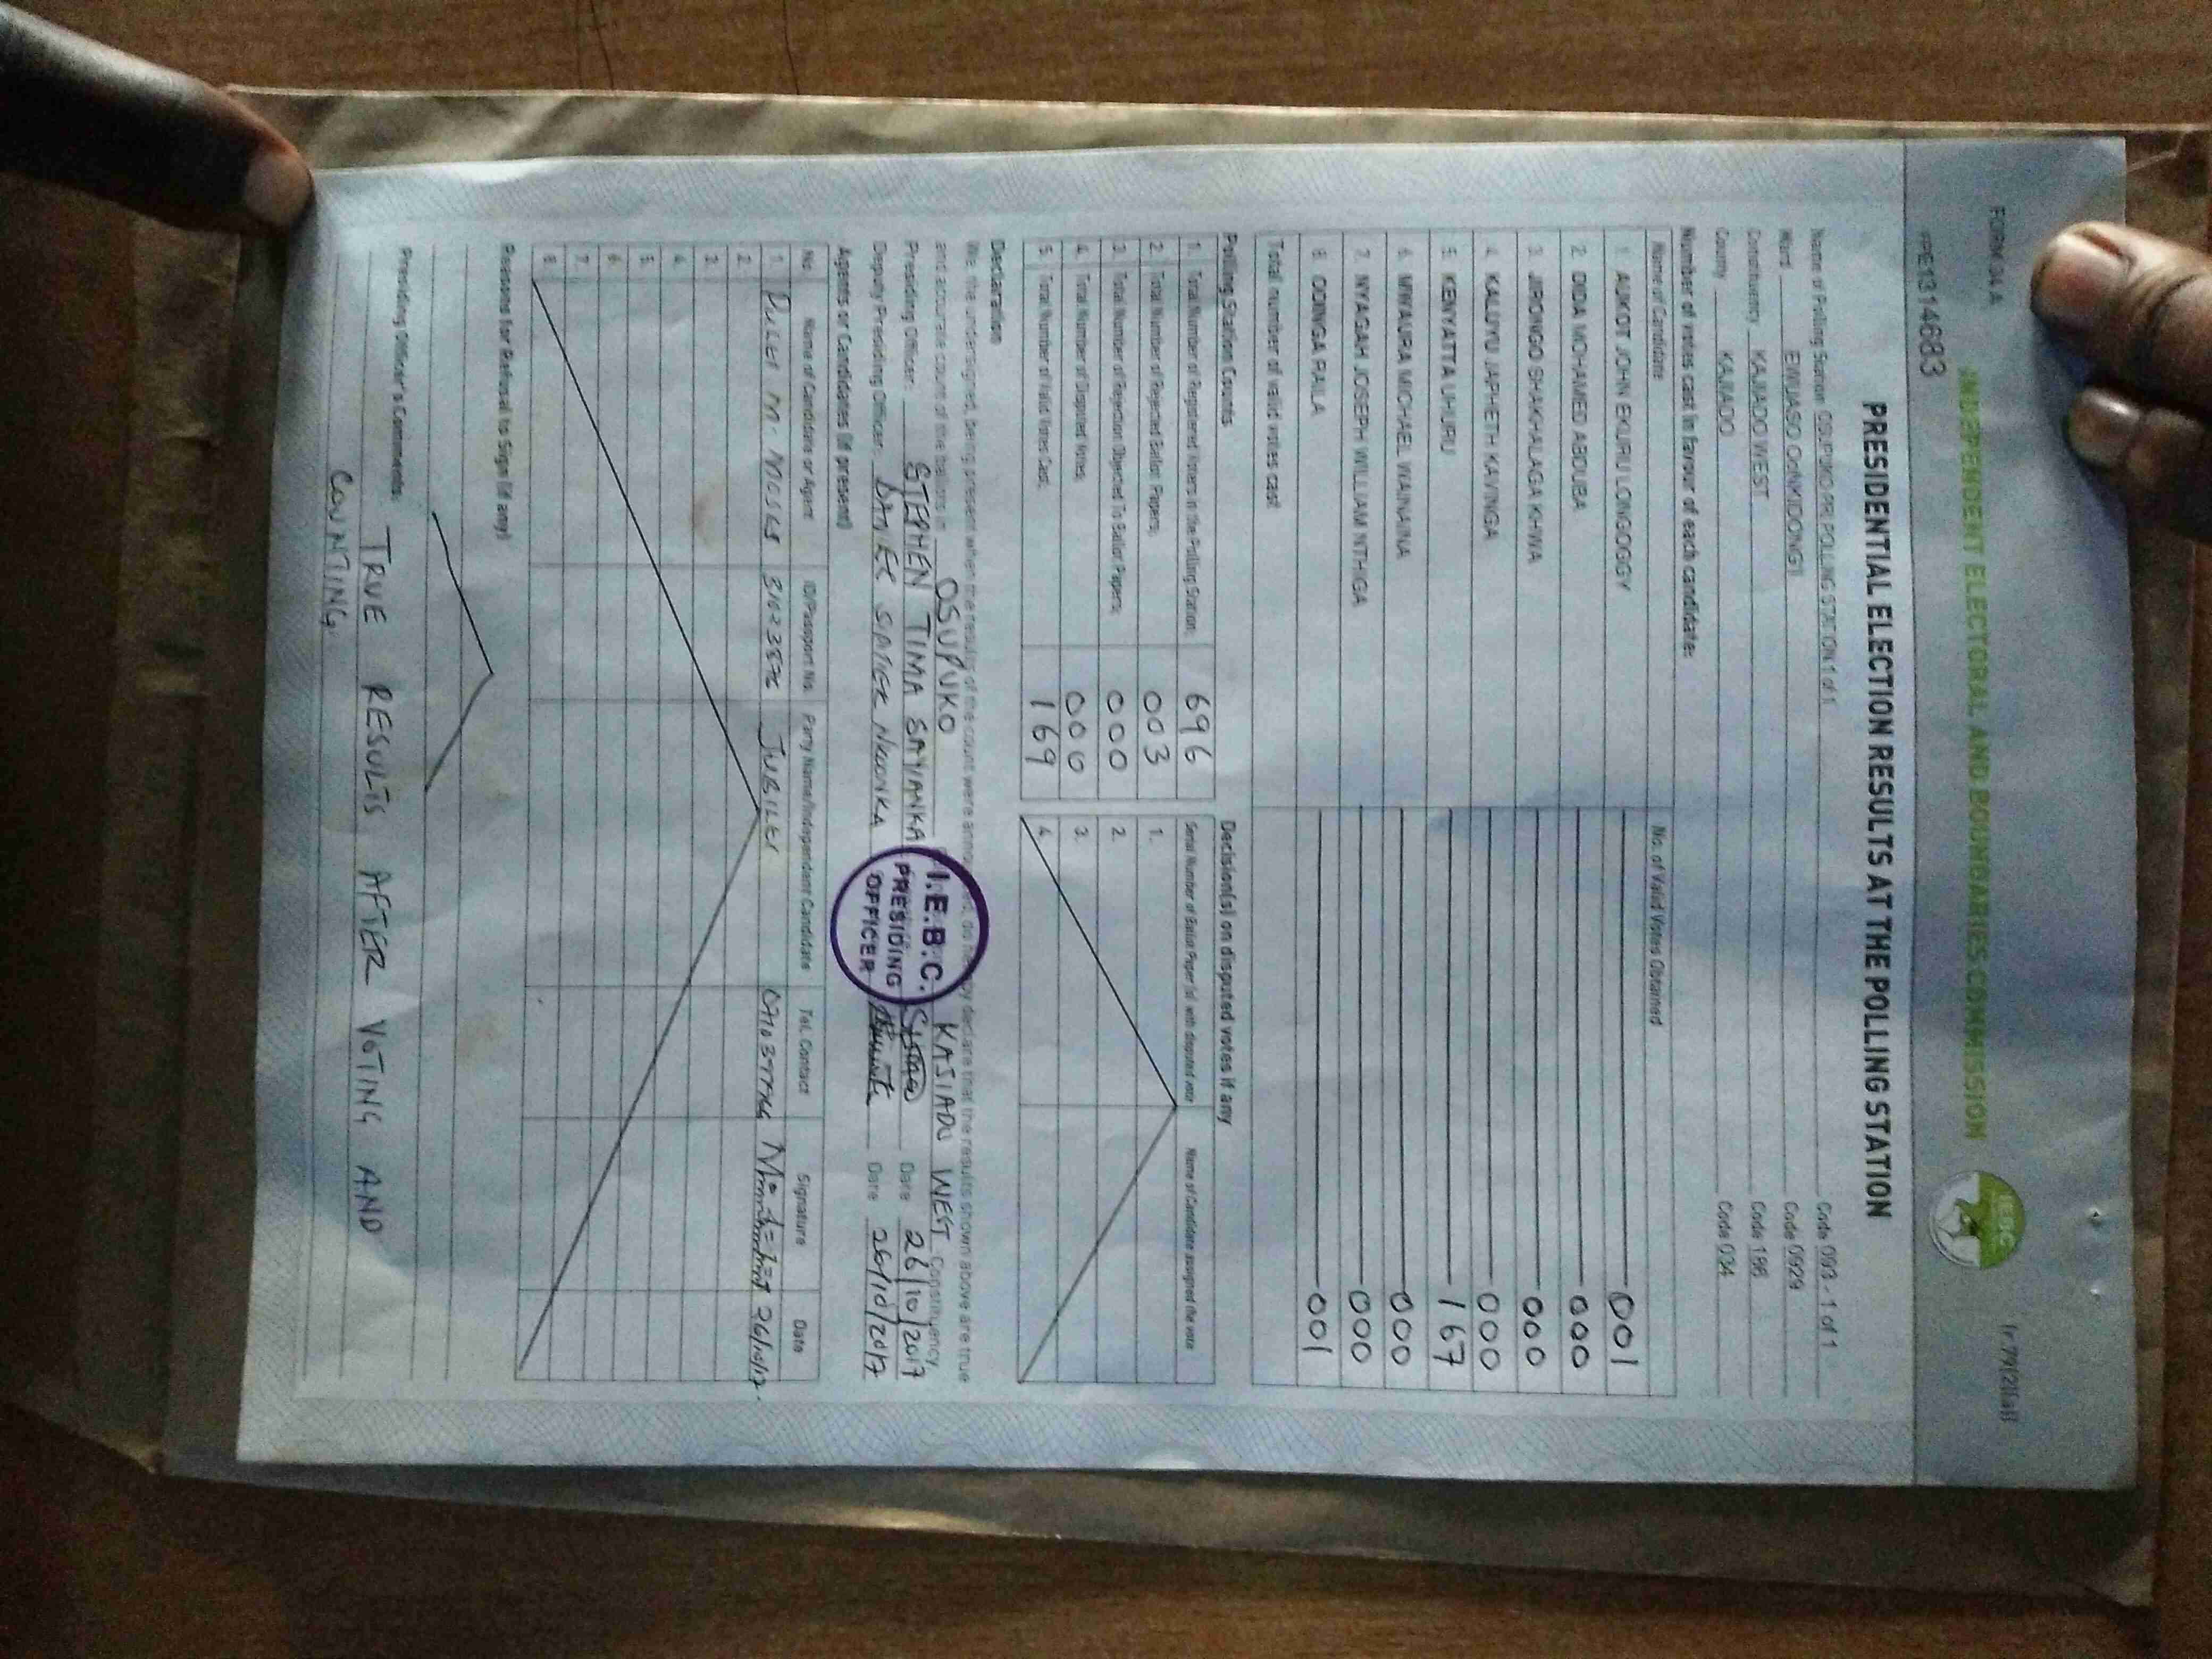 FORM 34 A
(r.79(2)(a))
INDEPENDENT ELECTORAL AND BOUNDARIES COMMISSION
IEBC
PRESIDENTIAL ELECTION RESULTS AT THE POLLING STATION
Name of Polling Station OSUPUKO PRI POLLING STATION 1 of 1 Code 093 - 1 of 1
Ward EWUASO OoNKIDONG'I Code 0929
Constituency KAJIADO WEST Code 186
County KAJIADO Code 034
Number of votes cast in favour of each candidate:
Name of Candidate No. of Valid Votes Obtained
1. AUKOT JOHN EKURU LONGOGGY 001
2. DIDA MOHAMED ABDUBA 000
3. JIRONGO SHAKHALAGA KHWA 000
4. KALUYU JAPHETH KAVINGA 000
5. KENYATTA UHURU 167
6. MWAURA MICHAEL WAINAINA 000
7. NYAGAH JOSEPH WILLIAM NTHIGA 000
8. ODINGA RAILA 001
Total number of valid votes cast
Polling Station Counts
1. Total Number of Registered Voters in the Polling Station 696
2. Total Number of Rejected Ballot Papers 003
3. Total Number of Rejection Objected To Ballot Papers 000
4. Total Number of Disputed Votes 000
5. Total Number of Valid Votes Cast 169
Decision(s) on disputed votes if any
Serial Number of Ballot Paper(s) with disputed vote Name of Candidate assigned the vote
1.
2.
3.
4.
Declaration
We, the undersigned, being present when the results of the count were announced, do hereby declare that the results shown above are true
and accurate count of the ballots in OSUPUKO KAJIADO WEST Constituency.
Presiding Officer: STEPHEN TIMA SAYIANKA Date 26/10/2017
Deputy Presiding Officer: DANIEL Date 26/10/2017
I.E.B.C.
PRESIDING
OFFICER
Agents or Candidates (if present)
No. Name of Candidate or Agent ID/Passport No. Party Name/Independent Candidate Tel. Contact Signature Date
1. M. MOSES JUBILEE 26/10/17.
2.
3.
4.
5.
6.
7.
8.
Reasons for Refusal to Sign (if any)
Presiding Officer's Comments TRUE RESULTS AFTER VOTING AND
COUNTING